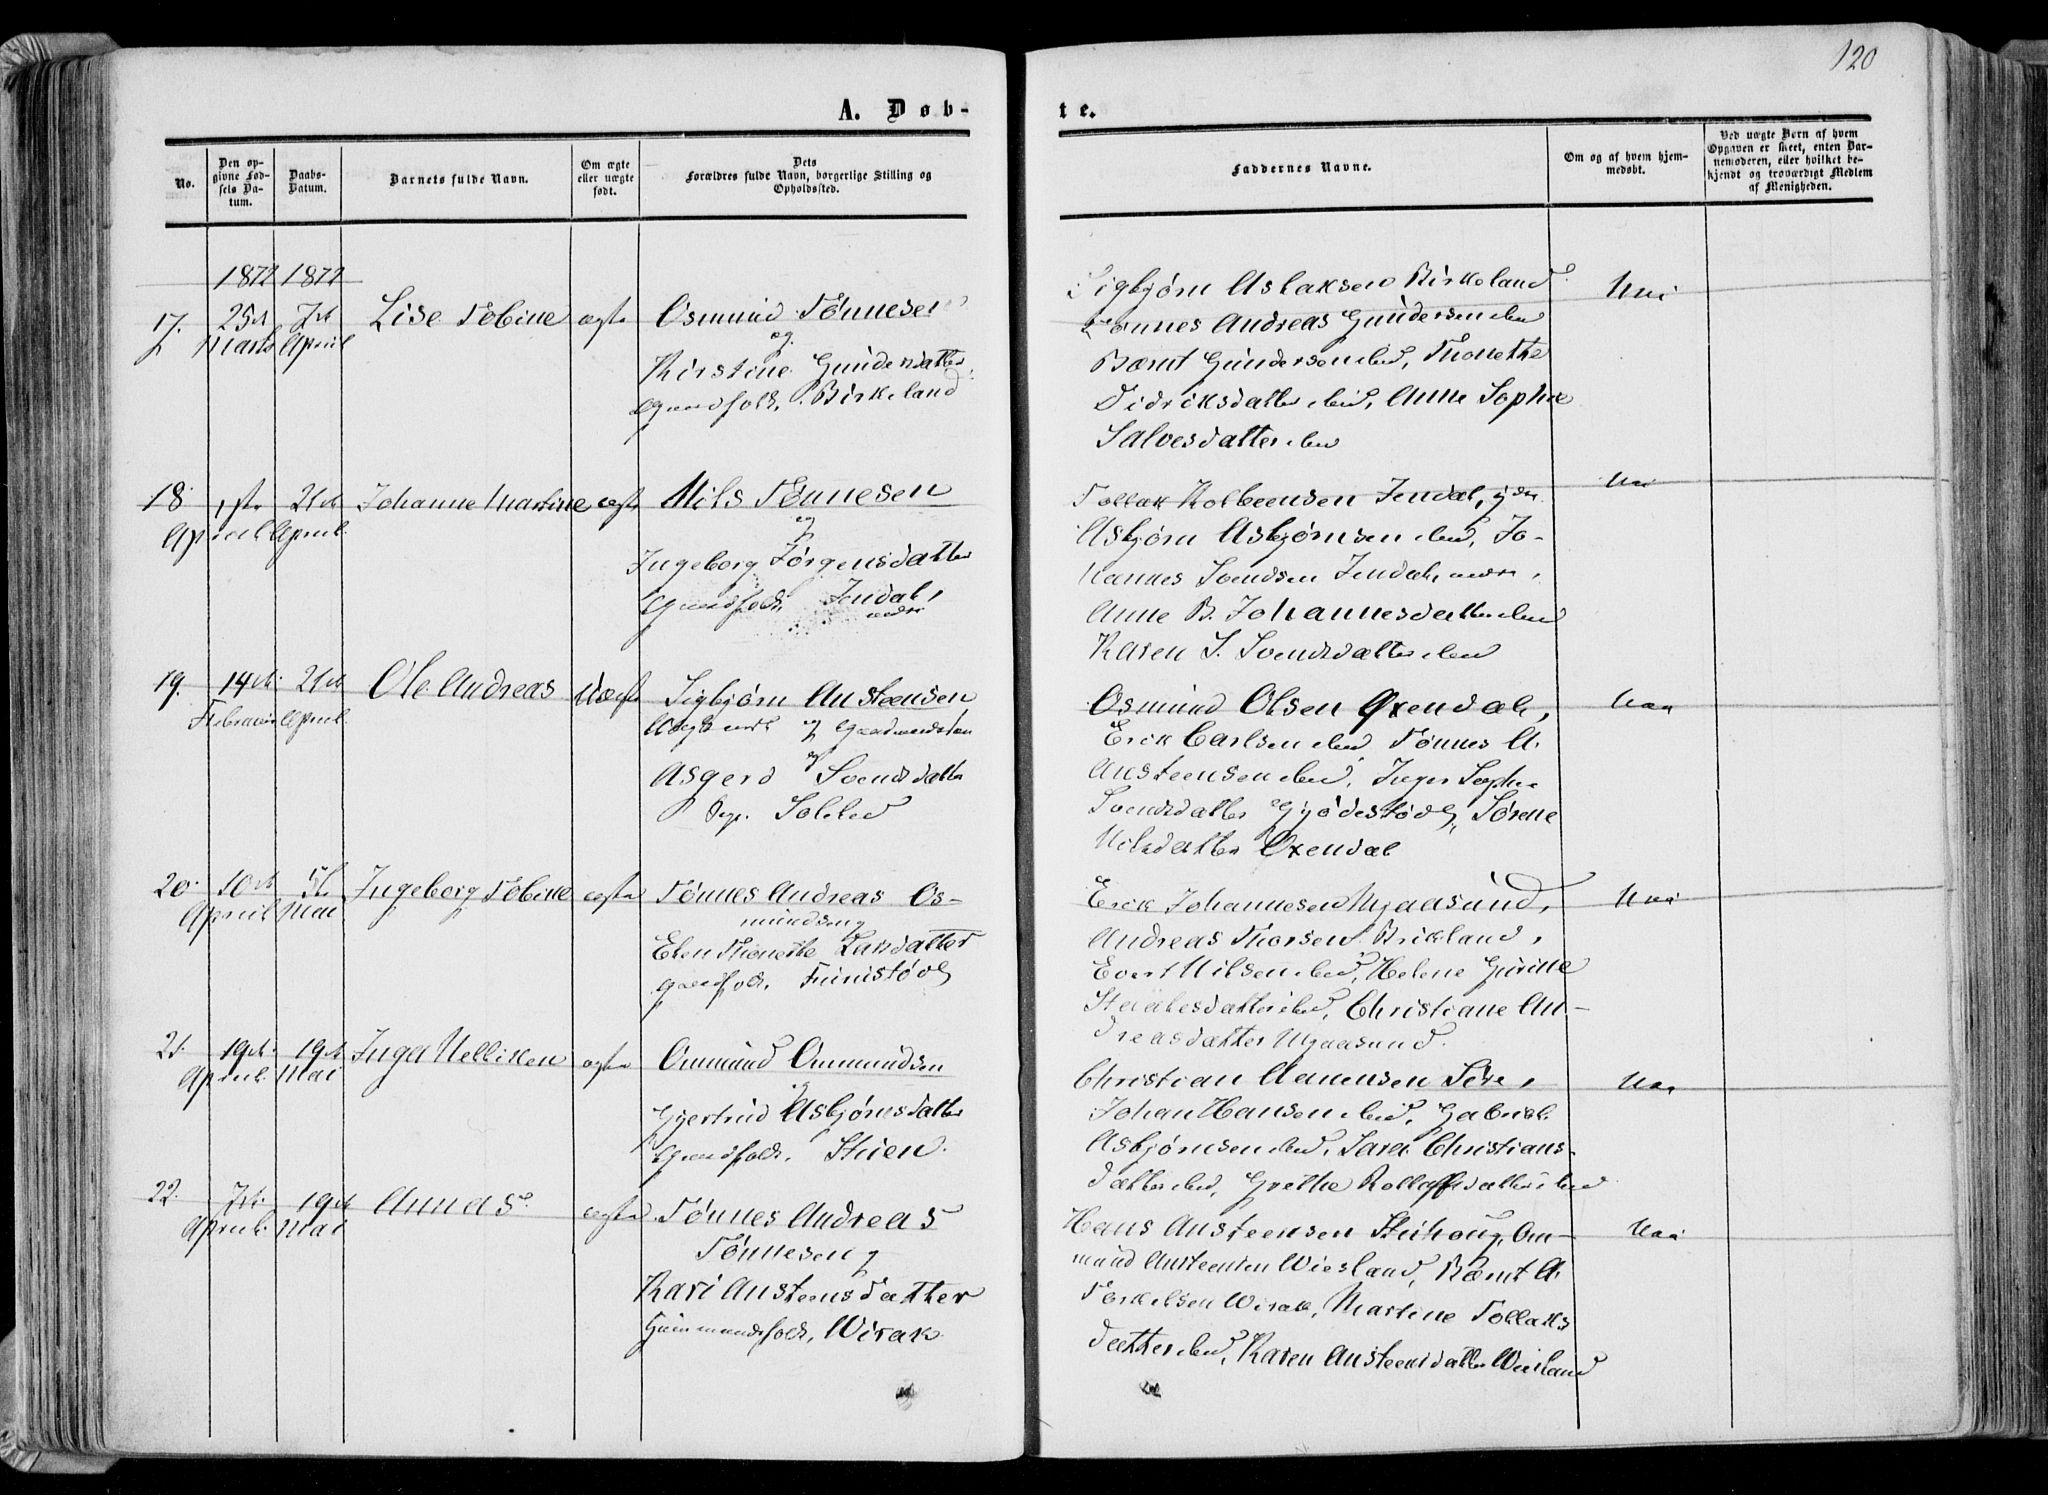 120
A. Døb-
te.
No.
Den op-
givne Fød-
sels Da-
tum.
Daabs-
Datum.
Barnets fulde Navn.
Om ægte
eller uægte
født.
Dets
Forældres fulde Navn, borgerlige Stilling og
Opholdssted.
Faddernes Navne.
Om og af hvem hjem-
medøbt.
Ved uægte Børn af hvem
Opgaven er skeet, enten Bar-
nemoderen, eller hvilket be-
kjendt og troværdigt Medlem
af Menigheden.
1872 1872
17. 25de 7de Lise Tobine ægte Osmund Tønnesen
Marts April og
Kirstine Gundersdatter
Gaardfolk, Birkeland
Sigbjørn Aslaksen Birkeland Nei
Tønnes Andreas Gundersen ibid
Bernt Gundersen ibid, Thonethe
Didriksdatter ibid, Anne Sophie
Salvesdatter ibid
18 1ste 21de Johanne Martine ægte Nils Tønnesen
April April og
Ingeborg Jørgensdatter
Gaardfolk, Jendal,
nedre
Tollak Kolbeensen Jendal, ydre Nei
Asbjørn Asbjørnsen ibid, Jo-
hannes Svendsen Jendal, nedre,
Anne B. Johannesdatter ibid
Karen S. Svendsdatter ibid
19. 14de 21de Ole Andreas Uægte Sigbjørn Austeensen
Februar April
og
Asgerd Svendsdatter
Pige Solli
Osmund Olsen Oxendal, Nei
Erik Carlsen ibid Tønnes A.
Austeensen ibid, Inger Sophie
Svendsdatter Gjødestøl, Sørene
Nilsdatter Oxendal
20. 10de 5te Ingeborg Tobine ægte Tønnes Andreas Os-
April Mai mundsen og
Elen Thonethe Larsdatter
Gaardfolk,
Erik Johannesen Mjaasund, Nei
Andreas Thorsen Birkland,
Evert Nilsen ibid, Helene Gurine
datter ibid, Christiane An-
dreasdatter Mjaasund.
21. 19de 19de Inger Nelliken ægte Ommund Ommundsen
April Mai og
Gjertrud Asbjørnsdatter
Gaardfolk, Stuen.
Christian Aanensen Sire, Nei
Johan Hansen ibid, Gabriel
Asbjørnsen ibid, Sara Christians-
datter ibid, Grethe datter ibid
22. 7de 19de Aunas ægte Tønnes Andreas
April Mai Tønnesen og
Kari Austeensdatter
folk, Wirak
Hans Austeensen Om- Nei
mund Austeensen Wiesland, Bernt A.
Terkelsen Wirak, Martine Tollaks
datter ibid, Karen Austeensdatter Wiesland